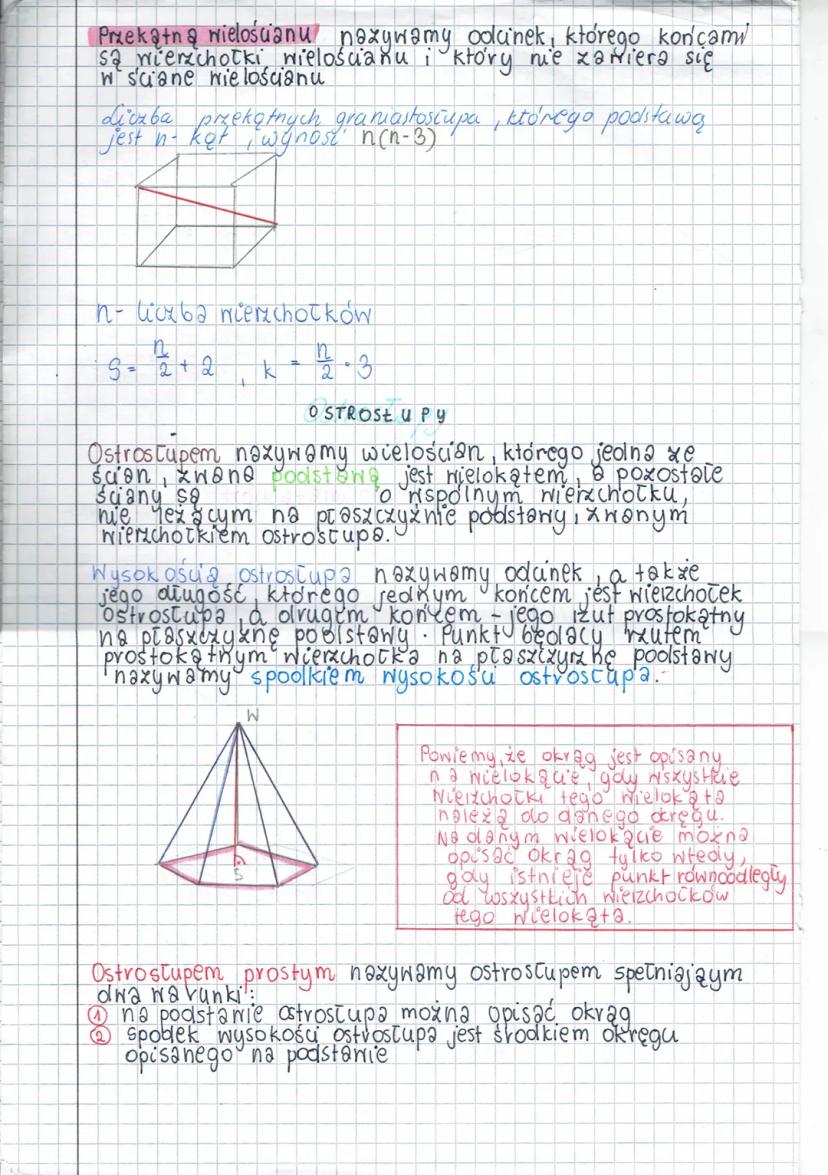 Przekątną wielościanu nazywamy odcinek, którego końcami
są wierzchołki wielościanu i który nie zawiera się
w ściane wielościanu
Liczba przekątnych graniastosłupa, którego podstawą
jest n-kąt, wynosi n(n-3)
n- liczba wierzchołków
S = n/2 + 2, k = n/2 · 3
OSTROSŁUPY
Ostrosłupem nazywamy wielościan, którego jedna ze
ścian, zwana podstawą jest wielokątem, a pozostałe
ściany są o wspólnym wierzchołku,
nie leżącym na płaszczyźnie podstawy, zwanym
wierzchołkiem ostrosłupa.
Wysokością ostrosłupa nazywamy odcinek, a także
jego długość, którego jednym końcem jest wierzchołek
ostrosłupa, a drugim końcem - jego rzut prostokątny
na płaszczyznę podstawy. Punkt będący rzutem
prostokątnym wierzchołka na płaszczyznę podstawy
nazywamy spodkiem wysokości ostrosłupa.
W
S
Powiemy, że okrąg jest opisany
na wielokącie, gdy wszystkie
wierzchołki tego wielokąta
należą do danego okręgu.
Na danym wielokącie można
opisać okrąg tylko wtedy,
gdy istnieje punkt równoodległy
od wszystkich wierzchołków
tego wielokąta.
Ostrosłupem prostym nazywamy ostrosłupem spełniającym
dwa warunki:
① na podstawie ostrosłupa można opisać okrąg
② spodek wysokości ostrosłupa jest środkiem okręgu
opisanego na podstawie